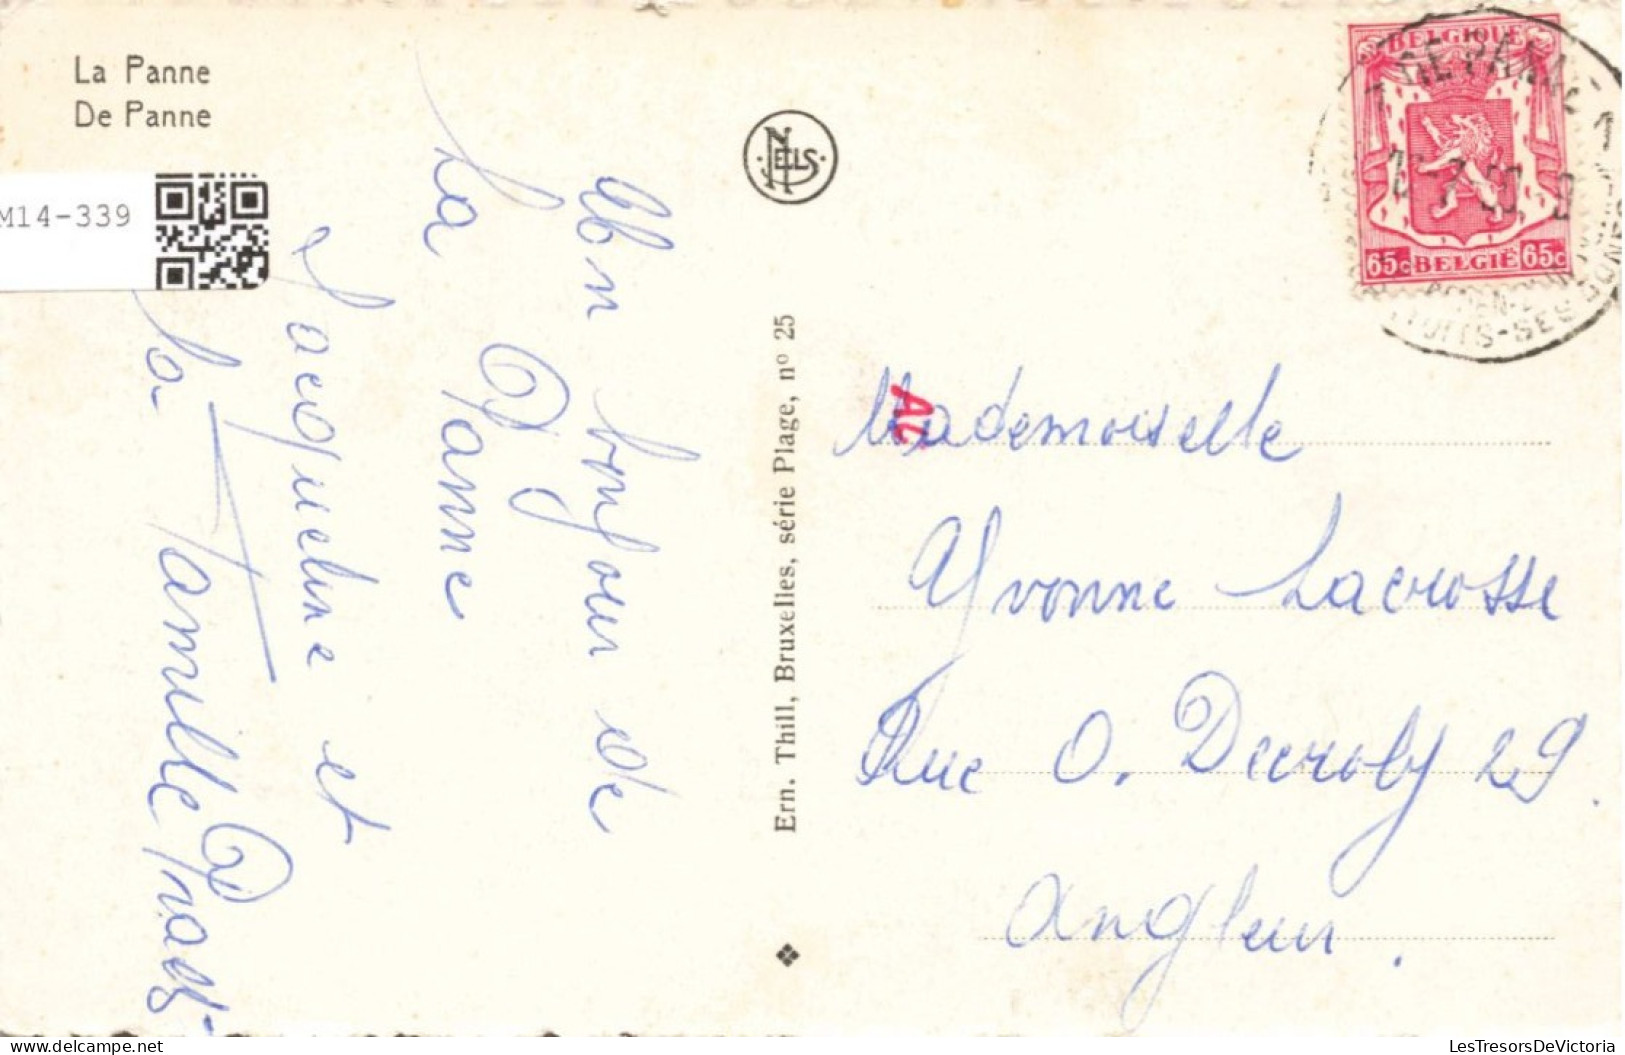 La Panne
De Panne
M14-339
Un bonjour de
La Panne
Jacqueline et
la famille
NELS
Ern. Thill, Bruxelles, série Plage, nº 25
BELGIQUE
65c BELGIË 65c
DE PANNE
AC
Mademoiselle
Yvonne Lacrosse
Rue O. Decroly 29.
Angleur.
LesTresorsDeVictoria